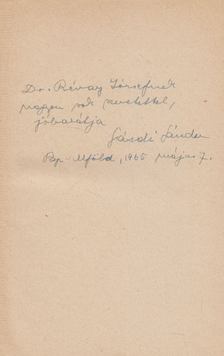 Dr. Révay Józsefnek
nagyon sok szeretettel,
jóbarátja
Gárdi Sándor
Bp., 1965 május 7.